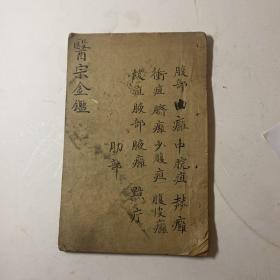 醫宗金鑑
腹部 幽癰 中脘疽 赫癰
衝疽 臍癰 少腹疽 腹皮癰
緩疽 腋部 腋癰
肋部